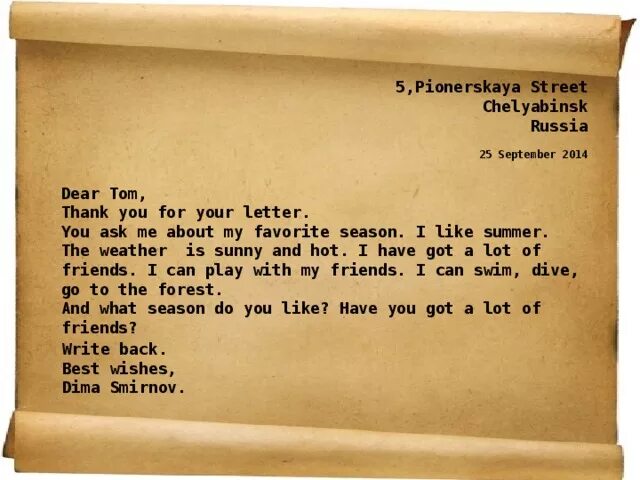 5,Pionerskaya Street
Chelyabinsk
Russia
25 September 2014
Dear Tom,
Thank you for your letter.
You ask me about my favorite season. I like summer.
The weather  is sunny and hot. I have got a lot of
friends. I can play with my friends. I can swim, dive,
go to the forest.
And what season do you like? Have you got a lot of
friends?
Write back.
Best wishes,
Dima Smirnov.